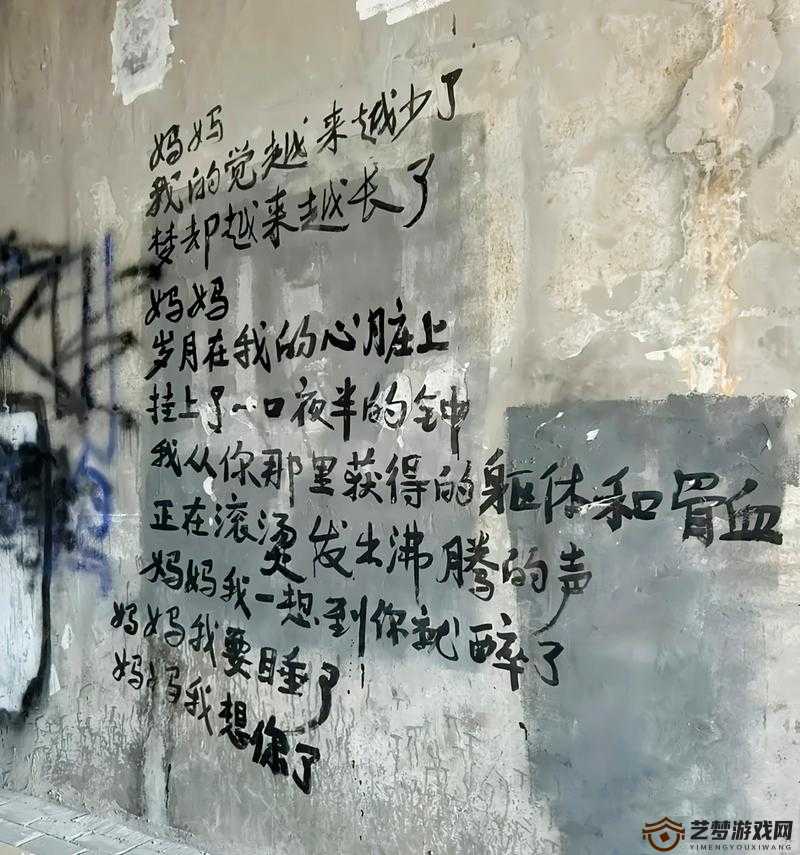 妈妈
我的觉越来越少了
梦却越来越长了
妈妈
岁月在我的心脏上
挂上了一口夜半的钟
我从你那里获得的躯体和骨血
正在滚烫发出沸腾的声
妈妈我一想到你就醉了
妈妈我要睡了
妈妈我想你了
艺梦游戏网
YIMENGYOUXIWANG